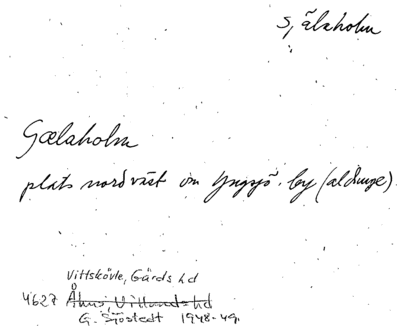 Själaholm
Gœlaholm
plats nordväst om Yngsjö by (aldunge)
Vittskövle, Gärds hd
4627 Åhus, Villands hd
G. Sjöstedt 1948-49.